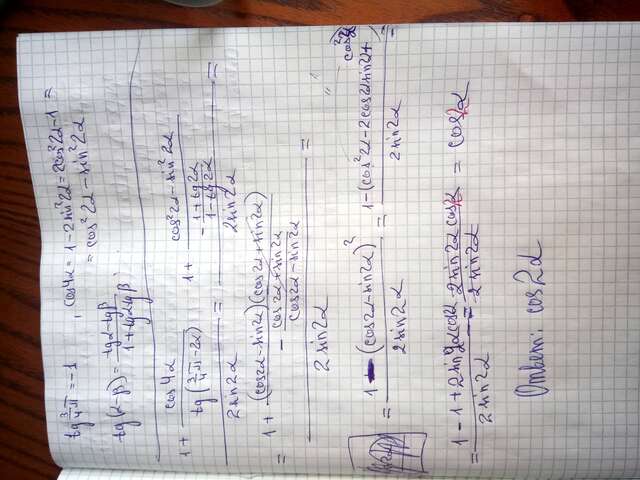 tg 3/4 π = -1 , cos4α = 1 - 2sin²2α = 2cos²2α - 1 =
= cos²2α - sin²2α
tg(α-β) = (tgα - tgβ)/(1 + tgα tgβ) ;
(1 + cos4α/tg(3/4 π - 2α))/(2sin2α) = (1 + (cos²2α - sin²2α)/(-(1+tg2α)/(1-tg2α)))/(2sin2α) =
= (1 + (cos2α - sin2α)(cos2α + sin2α)/(-(cos2α + sin2α)/(cos2α - sin2α)))/(2sin2α) =
= (1 - (cos2α - sin2α)²)/(2sin2α) = (1 - (cos²2α - 2cos2α sin2α +
2sin2α =
= (1 - 1 + 2sin2α cos2α)/(2sin2α) = (2sin2α cos2α)/(2sin2α) = cos2α
Ответ: cos2α